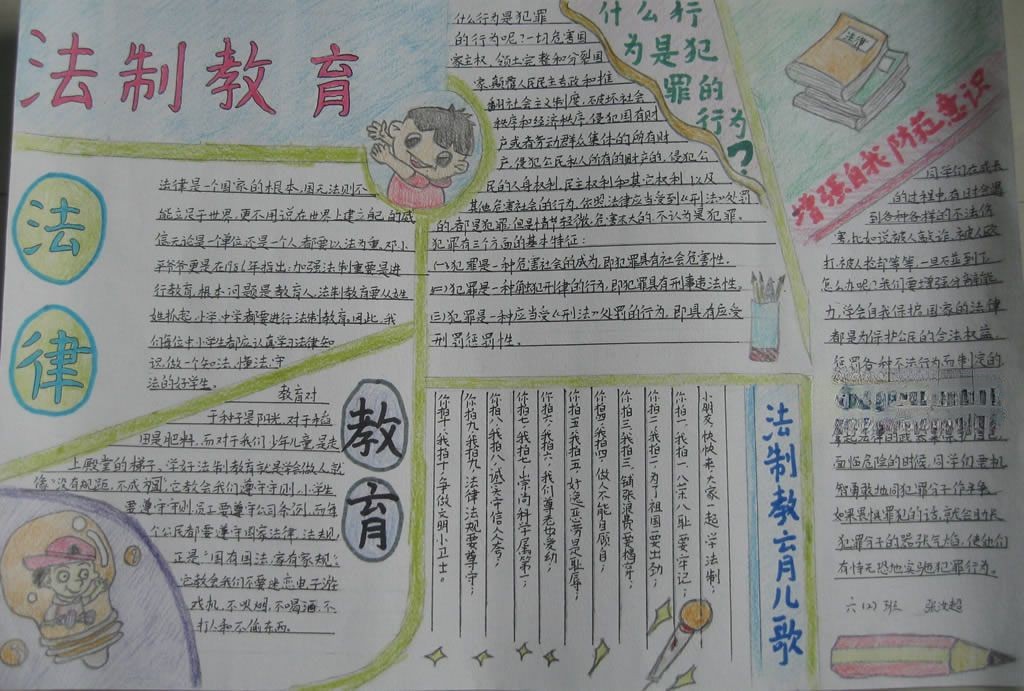 法制教育
法律
法律是一个国家的根本,国无法则不
能立足于世界,更不用说在世界上建立起的威
信,无论是一个单位还是一个人都要以法为重,邓小
平爷爷更是在1986年指出:加强法制重要是进
行教育,根本问题是教育人,法制教育要从娃
娃抓起,小学,中学都要进行法制教育。因此,我
们每位中小学生都应认真学习法律知
识,做一个知法,懂法,守
法的好学生。
教育
教育对
于种子是阳光,对于稻
田是肥料,而对于我们少年儿童,是走
上殿堂的梯子。学好法制教育就是学会做人,就
像"没有规距,不成方圆",它教会我们遵守守则,小学生
要遵守守则,员工要遵守公司条例,而每
个公民都要遵守国家法律,法规,
正是"国有国法,家有家规",
它教会我们不要迷恋电子游
戏机,不吸烟,不喝酒,不
打人和不偷东西。
什么行为是犯罪的行为?
什么行为是犯罪
的行为呢?一切危害国
家主权、领土完整和分裂国
家、颠覆人民民主专政和推
翻社会主义制度,破坏社会
秩序和经济秩序,侵犯国有财
产或者劳动群众集体的所有财
产,侵犯公民私人所有的财产的,侵犯公
民的人身权利,民主权利和其它权利,以及
其他危害社会的行为,依照法律应当受到《刑法》处罚
的,都是犯罪,但是情节轻微,危害不大的,不认为是犯罪。
犯罪有三个方面的基本特征:
(一)犯罪是一种危害社会的成为,即犯罪具有社会危害性。
(二)犯罪是一种触犯刑律的行为,即犯罪具有刑事违法性。
(三)犯罪是一种应当受《刑法》处罚的行为,即具有应受
刑罚惩罚性。
法制教育儿歌
小朋友,快快来,大家一起学法制,
你拍一,我拍一,八荣八耻要牢记;
你拍二,我拍二,为了祖国要出力;
你拍三,我拍三,铺张浪费要摒弃;
你拍四,我拍四,做人不能自顾自;
你拍五,我拍五,好逸恶劳是耻辱;
你拍六,我拍六,我们尊老也爱幼;
你拍七,我拍七,崇尚科学属第一;
你拍八,我拍八,诚实守信人人夸;
你拍九,我拍九,法律法规要尊守;
你拍十,我拍十,争做文明小卫士。
法律
增强自我防范意识
同学们在成长
的过程中,在日社会遇
到各种各样的不法伤
害,比如说被人敲诈,被人殴
打,被人抢劫等等,一旦不幸到了
怎么办呢?我们要增强分辨能
力,学会自我保护,国家的法律
都是为保护公民的合法权益,
惩罚各种不法行为而制定的
面临危险的时候,同学们要机
智勇敢地同犯罪分子作斗争,
如果畏惧罪犯的话,就会助长
犯罪分子的嚣张气焰,使他们
有恃无恐地实施犯罪行为。
六(2)班